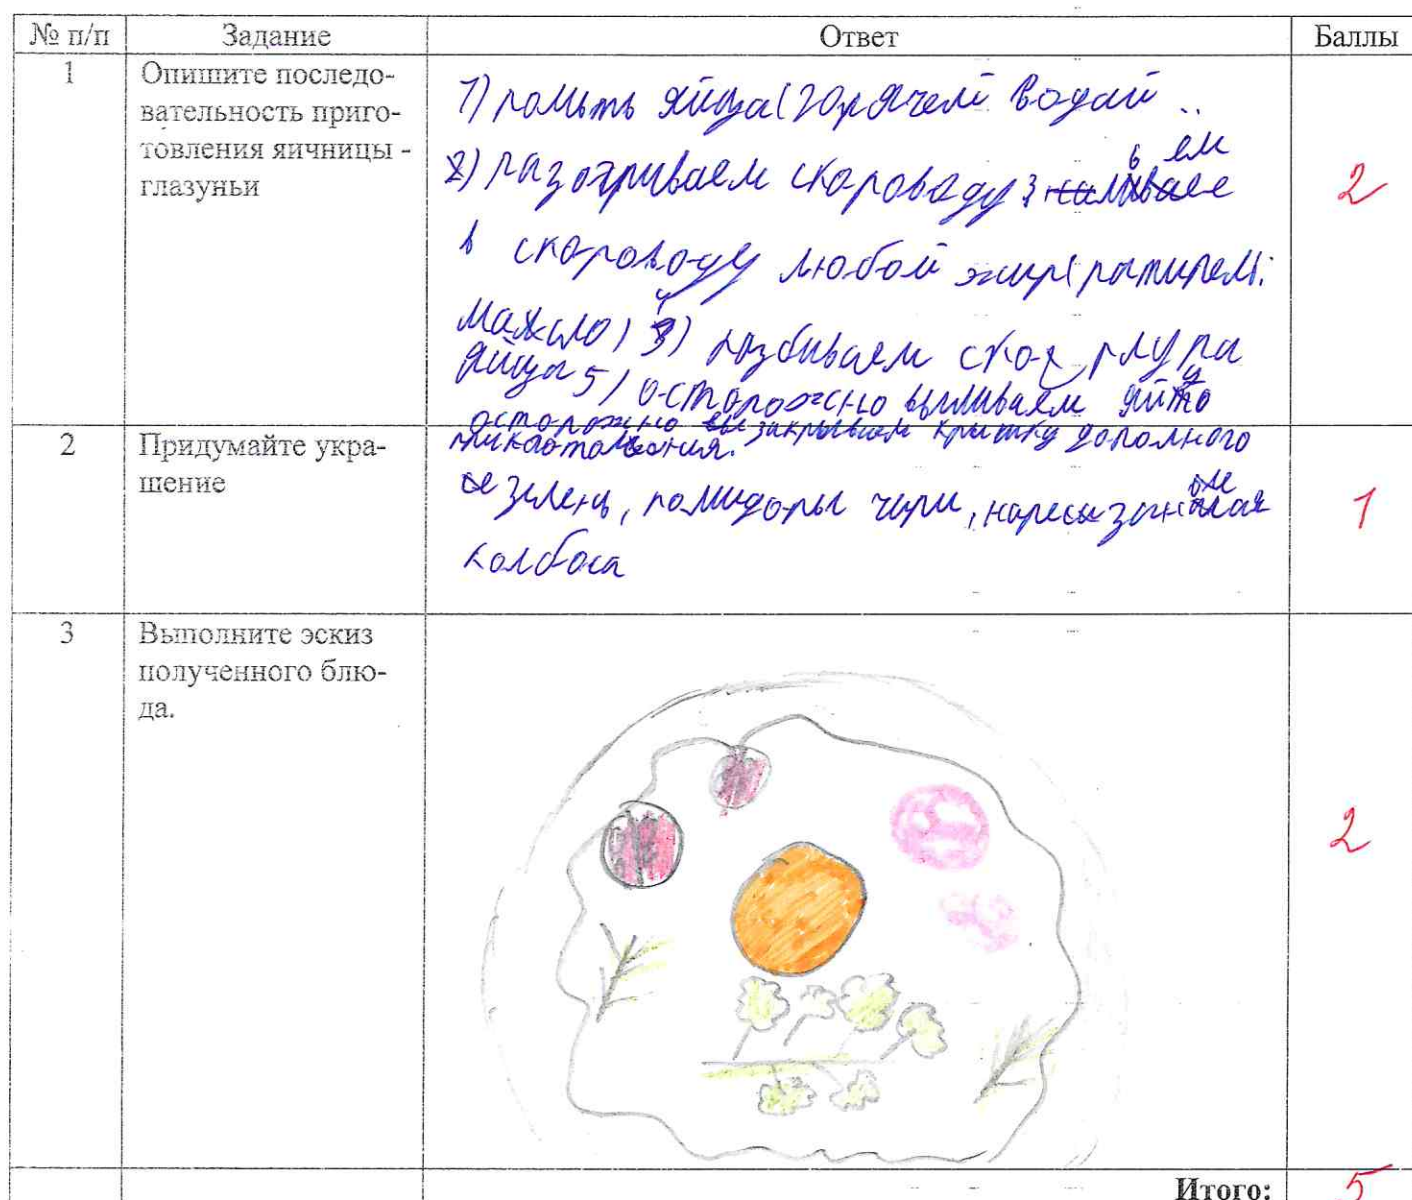 № п/п Задание Ответ Баллы
1 Опишите последо-
вательность приго-
товления яичницы -
глазуньи
1) помыть яйца (горячей водай
2) разогриваем скароваду 3
в скороводу любой жир(
масло) 4) разбиваем
яйца 5) осторожно выливаем
осторожно закрываем крышку дополного
2
2 Придумайте укра-
шение
зелень, помидоры чери,
колбоса
1
3 Выполните эскиз
полученного блю-
да.
2
Итого: 5